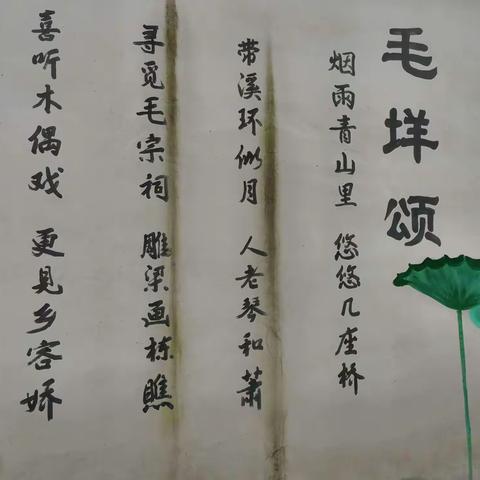 毛垟颂
烟雨青山里 悠悠几座桥
带溪环似月 人老琴和萧
寻觅毛宗祠 雕梁画栋瞧
喜听木偶戏 更见乡容娇